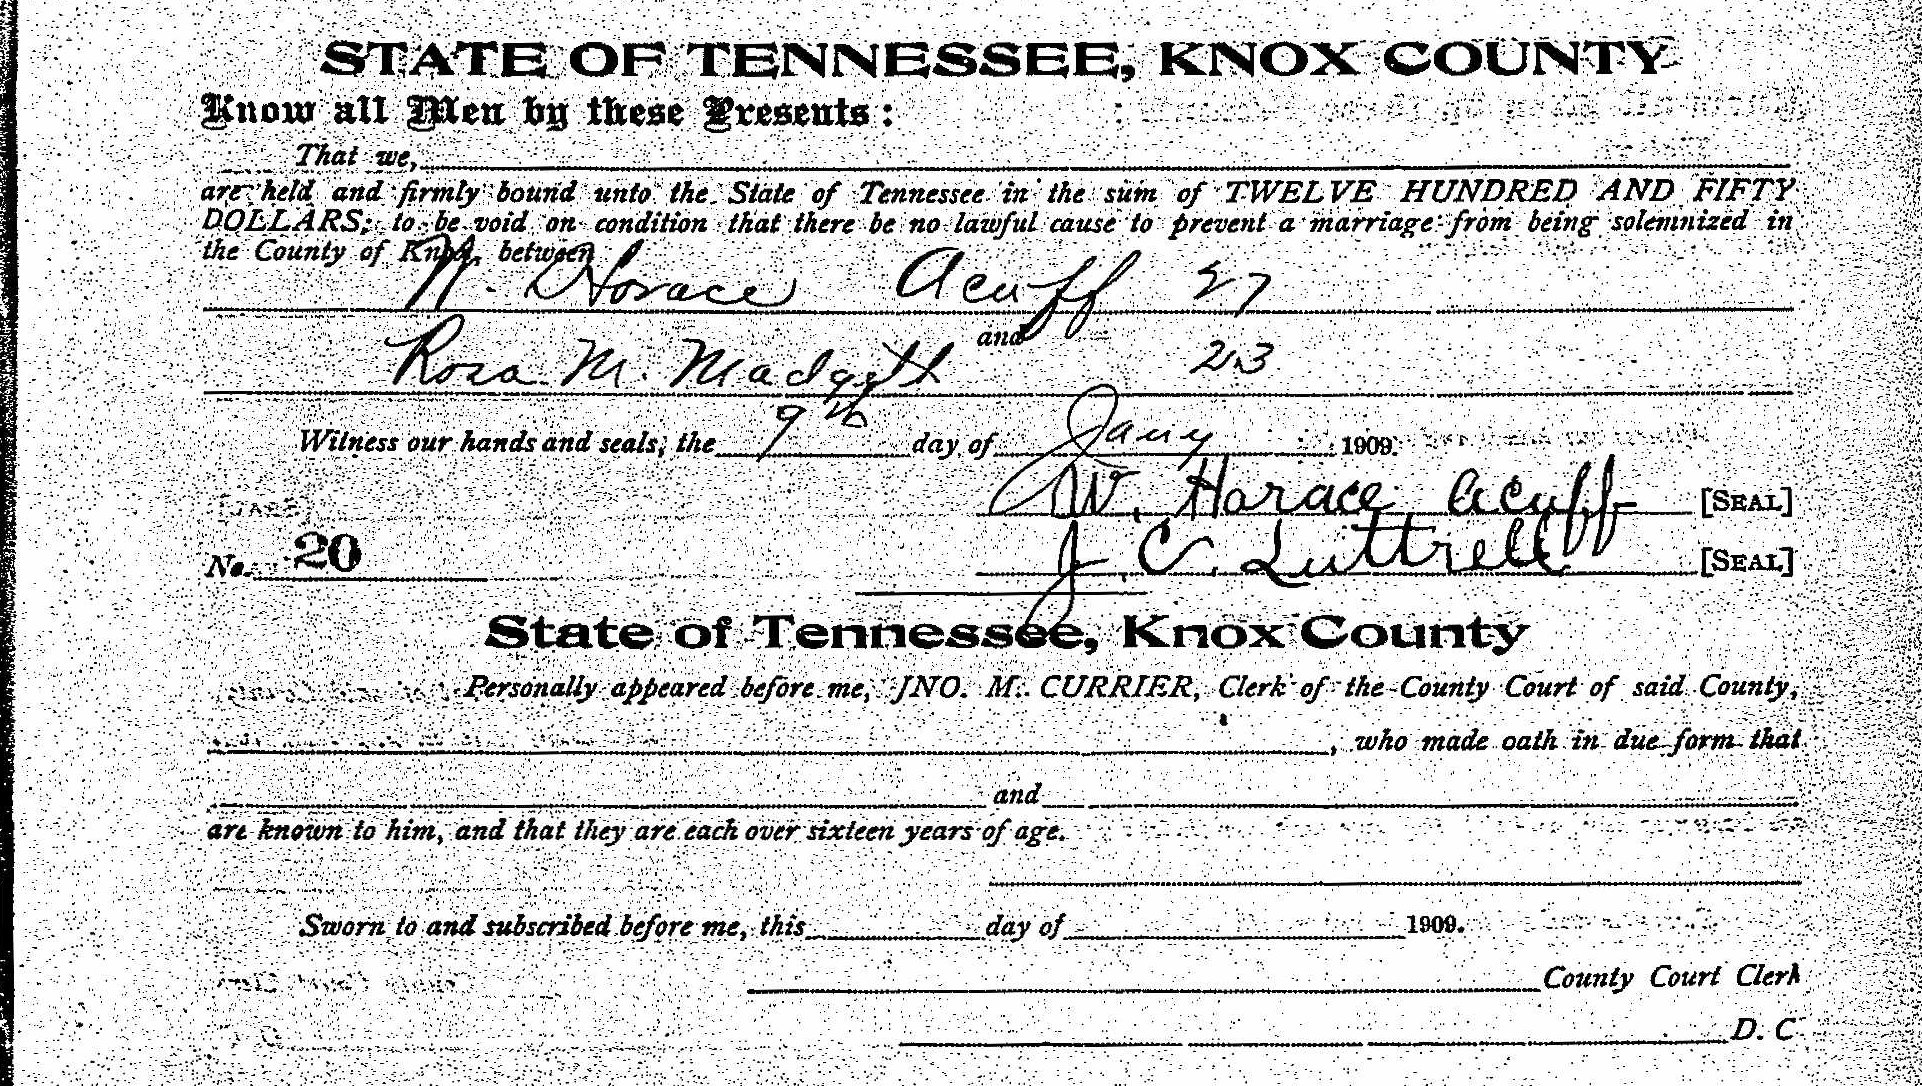 STATE OF TENNESSEE, KNOX COUNTY
Know all Men by these Presents:
That we,
are held and firmly bound unto the State of Tennessee in the sum of TWELVE HUNDRED AND FIFTY
DOLLARS; to be void on condition that there be no lawful cause to prevent a marriage from being solemnized in
the County of Knox, between
W. Horace Acuff 27
and
Rosa M. Madgett 23
Witness our hands and seals, the 9th day of Jany 1909.
W. Horace Acuff [SEAL]
J. C. Luttrell [SEAL]
No. 20
State of Tennessee, Knox County
Personally appeared before me, JNO. M. CURRIER, Clerk of the County Court of said County,
, who made oath in due form that
and
are known to him, and that they are each over sixteen years of age.
Sworn to and subscribed before me, this day of 1909.
County Court Clerk
D. C